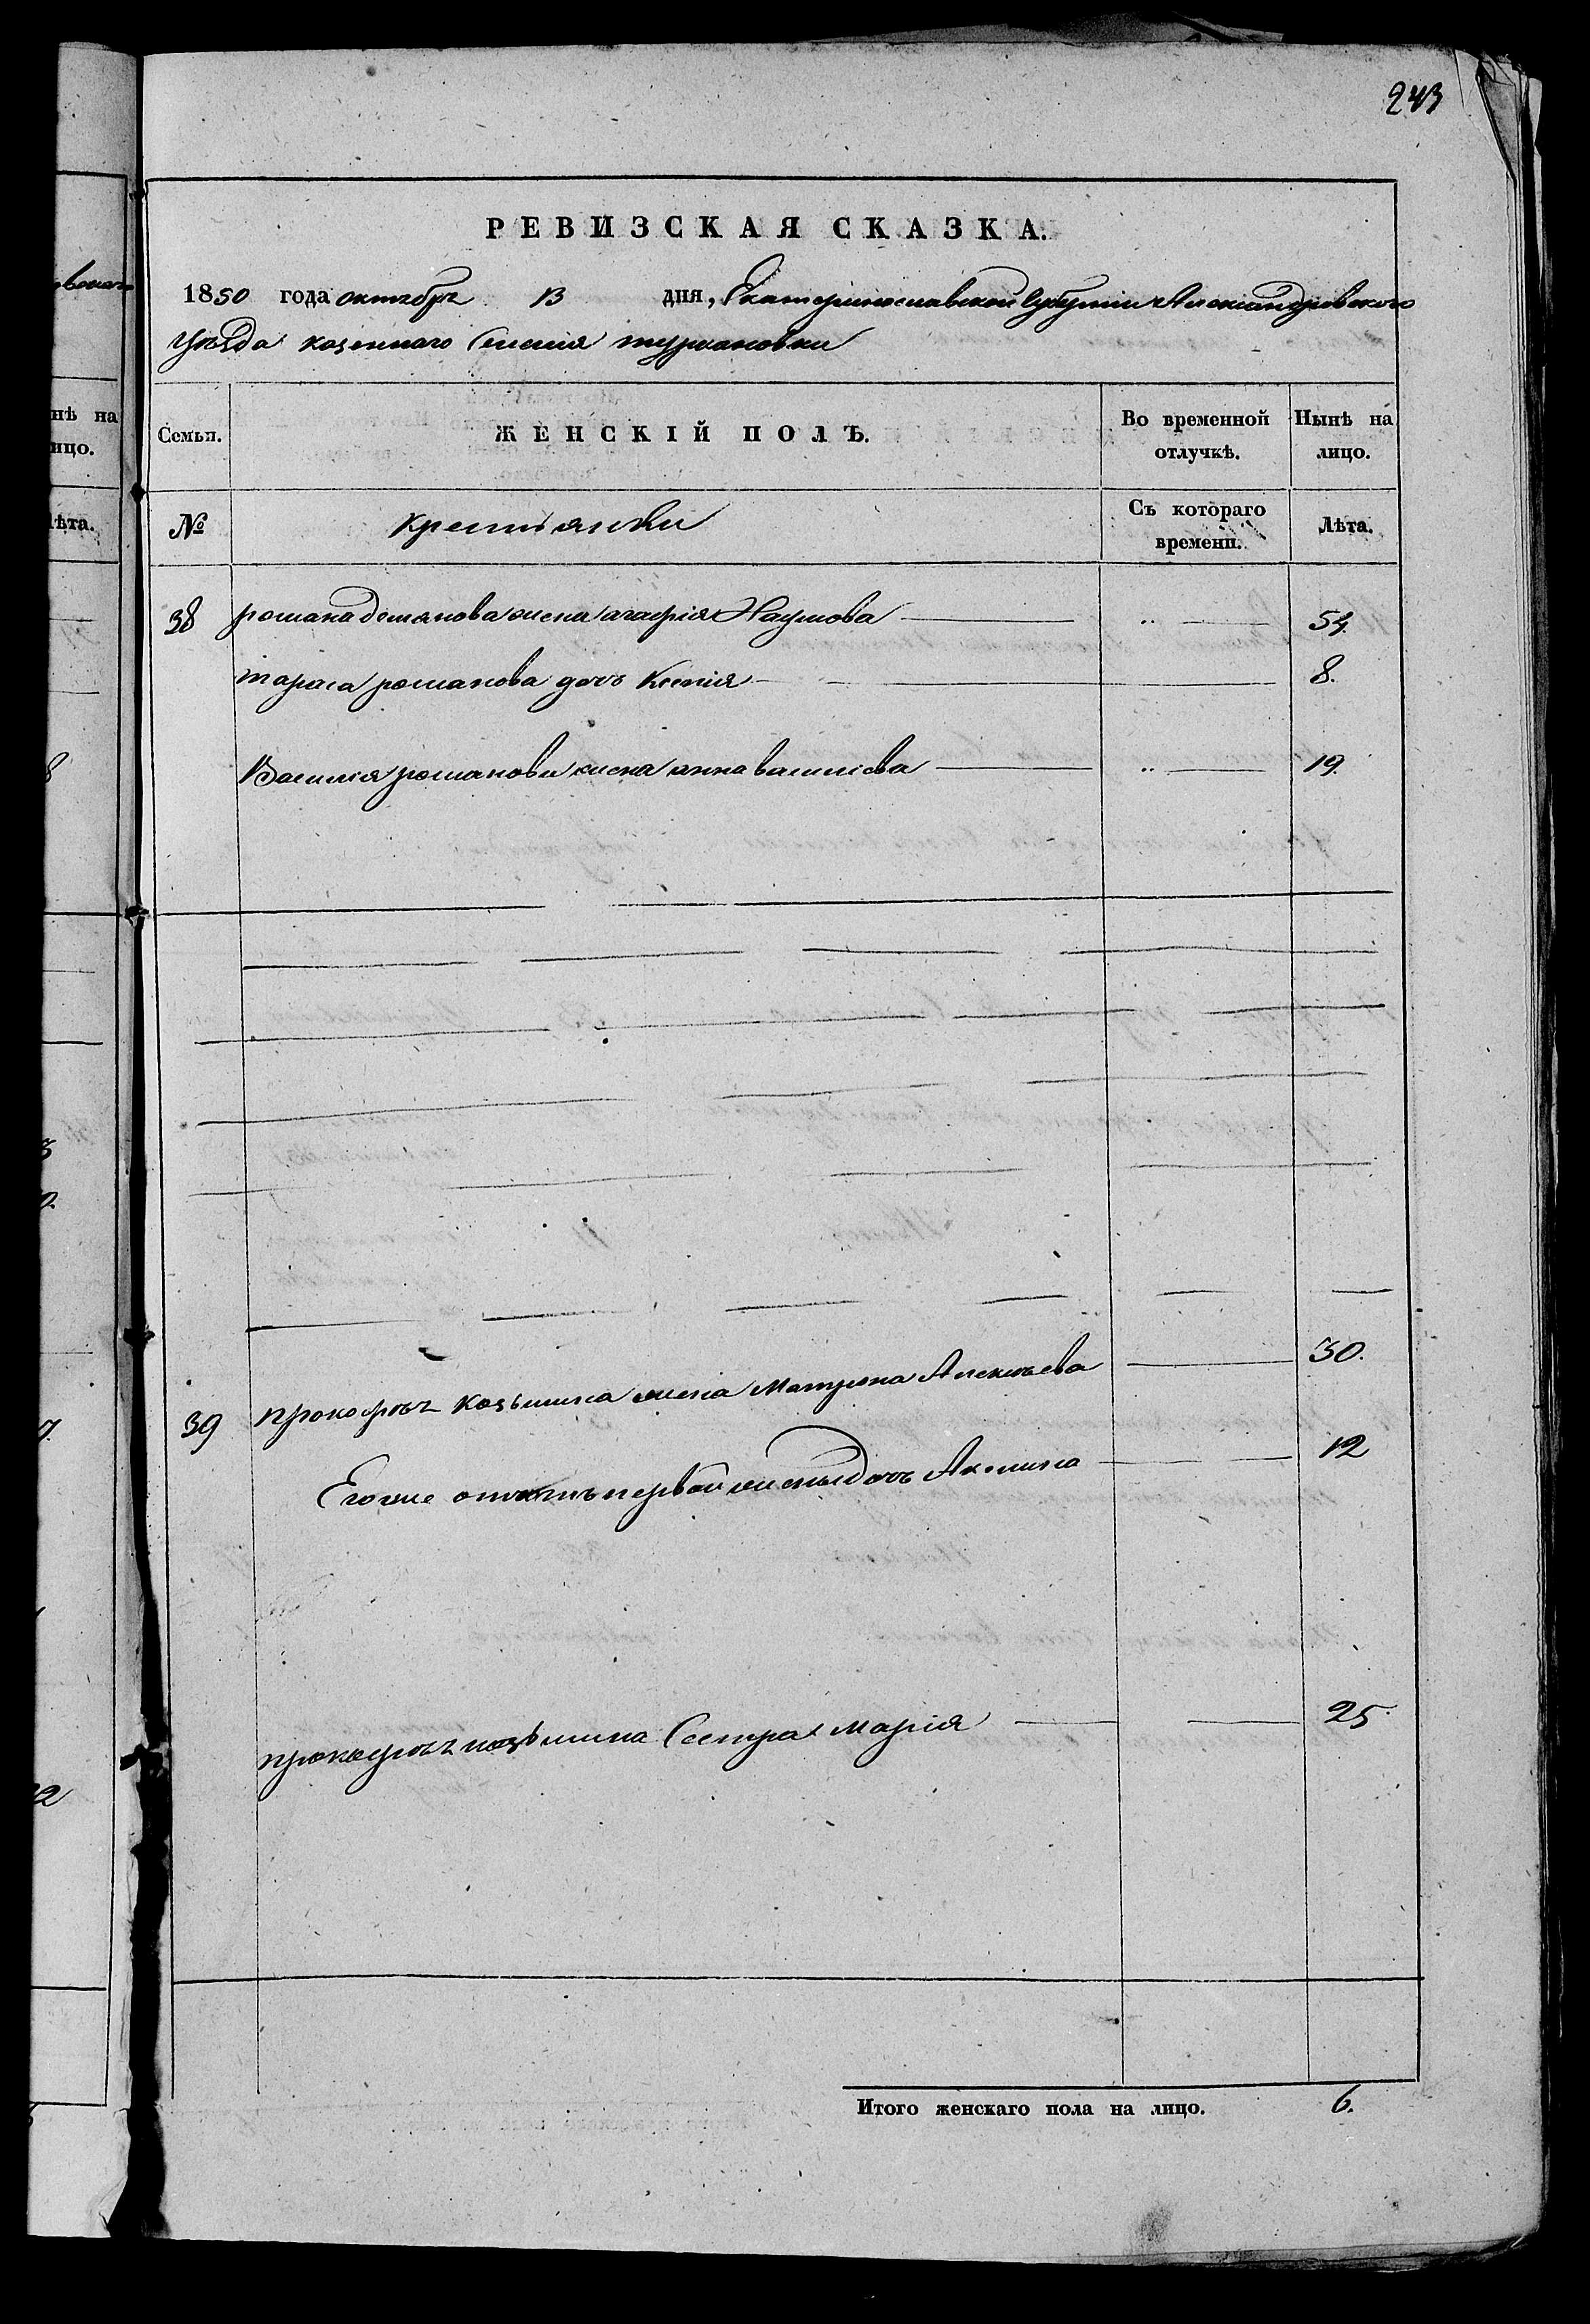 243
РЕВИЗСКАЯ СКАЗКА.
1850 года октября 13 дня, Екатеринославской Губернии Александровского
уезда казенного Селения
Семьи. ЖЕНСКІЙ ПОЛЪ. Во временной отлучкѣ. Нынѣ на лицо.
№ крестьянки Съ котораго времени. Лѣта.
38 романа демянова жена агафія Наумова 54.
тараса романова дочь Ксенія 8.
Василія романова жена анна васильева 19.
39 прокофья козьмина жена Матрона Алексѣева 30.
Егоже отъ первой жены дочь Акилина 12
прокофья козьмина Сестра Марія 25.
Итого женскаго пола на лицо. 6.
нѣ на
ицо.
ѣта.